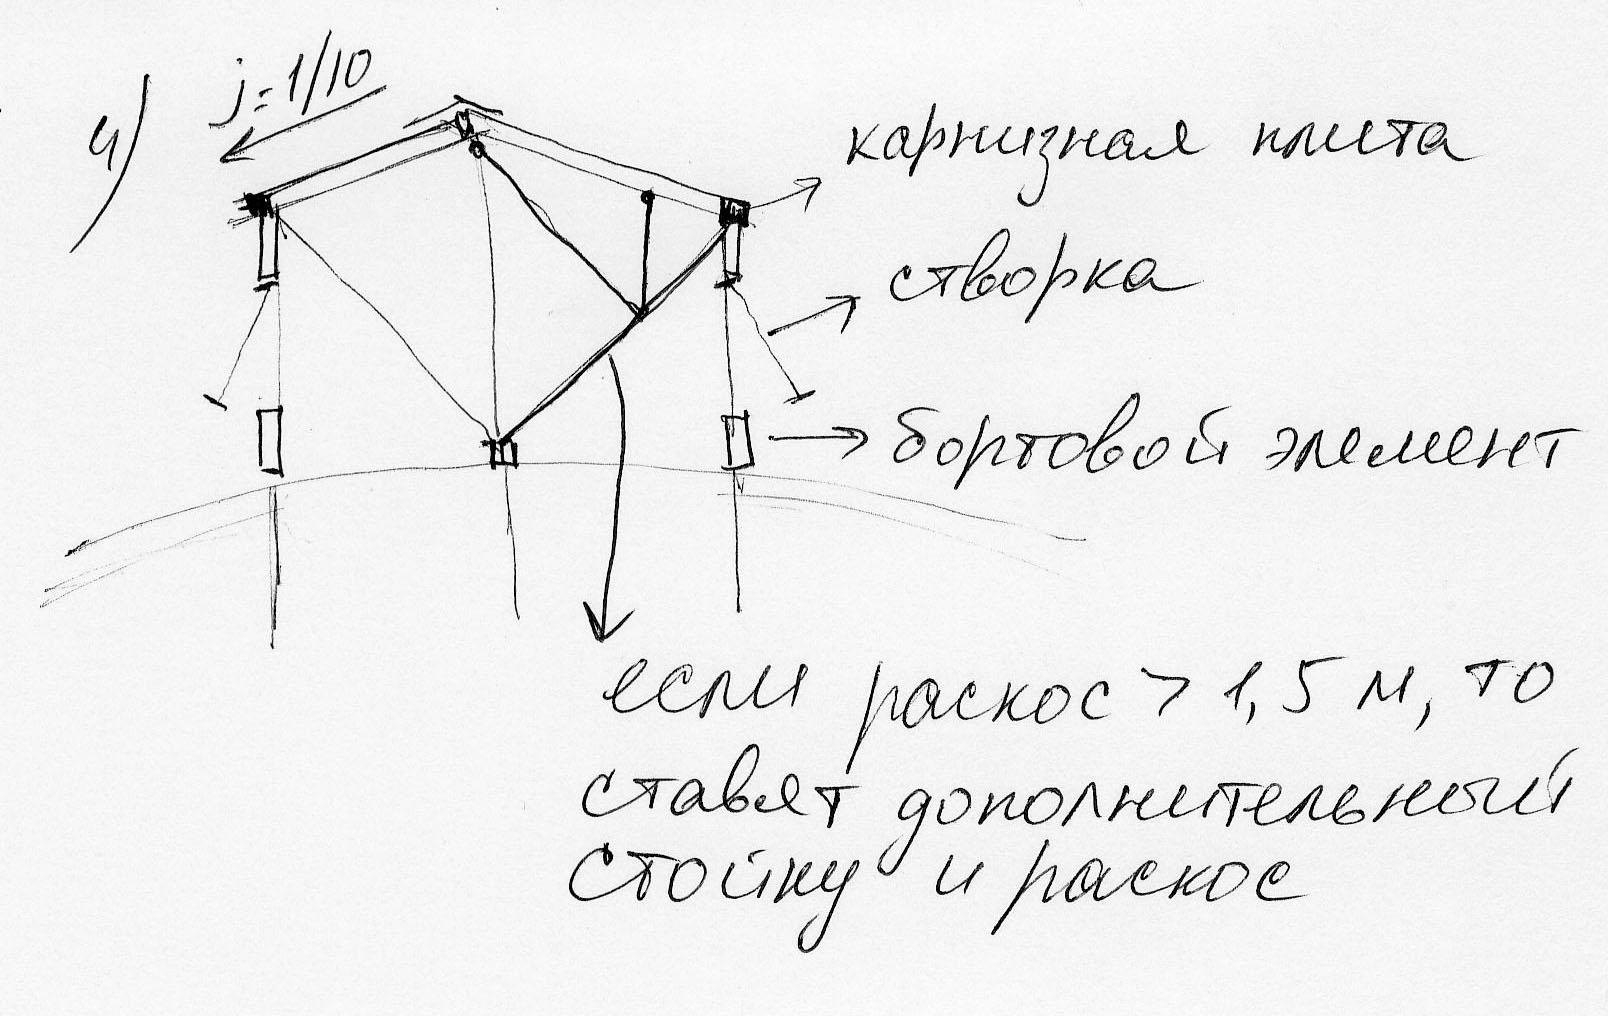 4)
j=1/10
карнизная плита
створка
бортовой элемент
если раскос > 1,5 м, то
ставят дополнительный
стойку и раскос